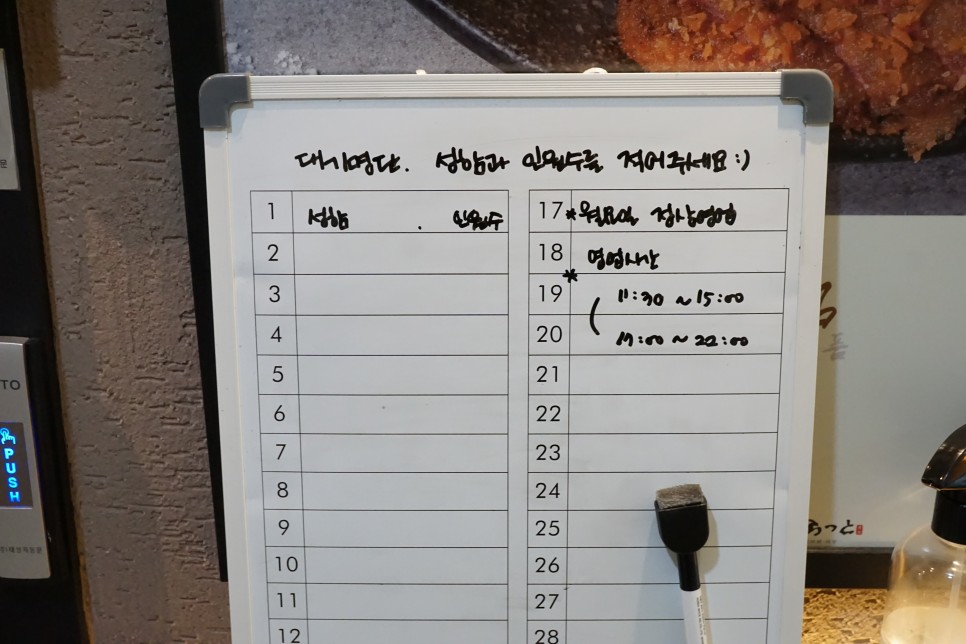 대기명단. 성함과 인원수를 적어주세요:)
1 성함 . 인원수
2
3
4
5
6
7
8
9
10
11
12
17 * 월요일 정상영업
18 영업시간
*
19 11:30 ~ 15:00
20 17:00 ~ 22:00
21
22
23
24
25
26
27
28
TO
PUSH
문